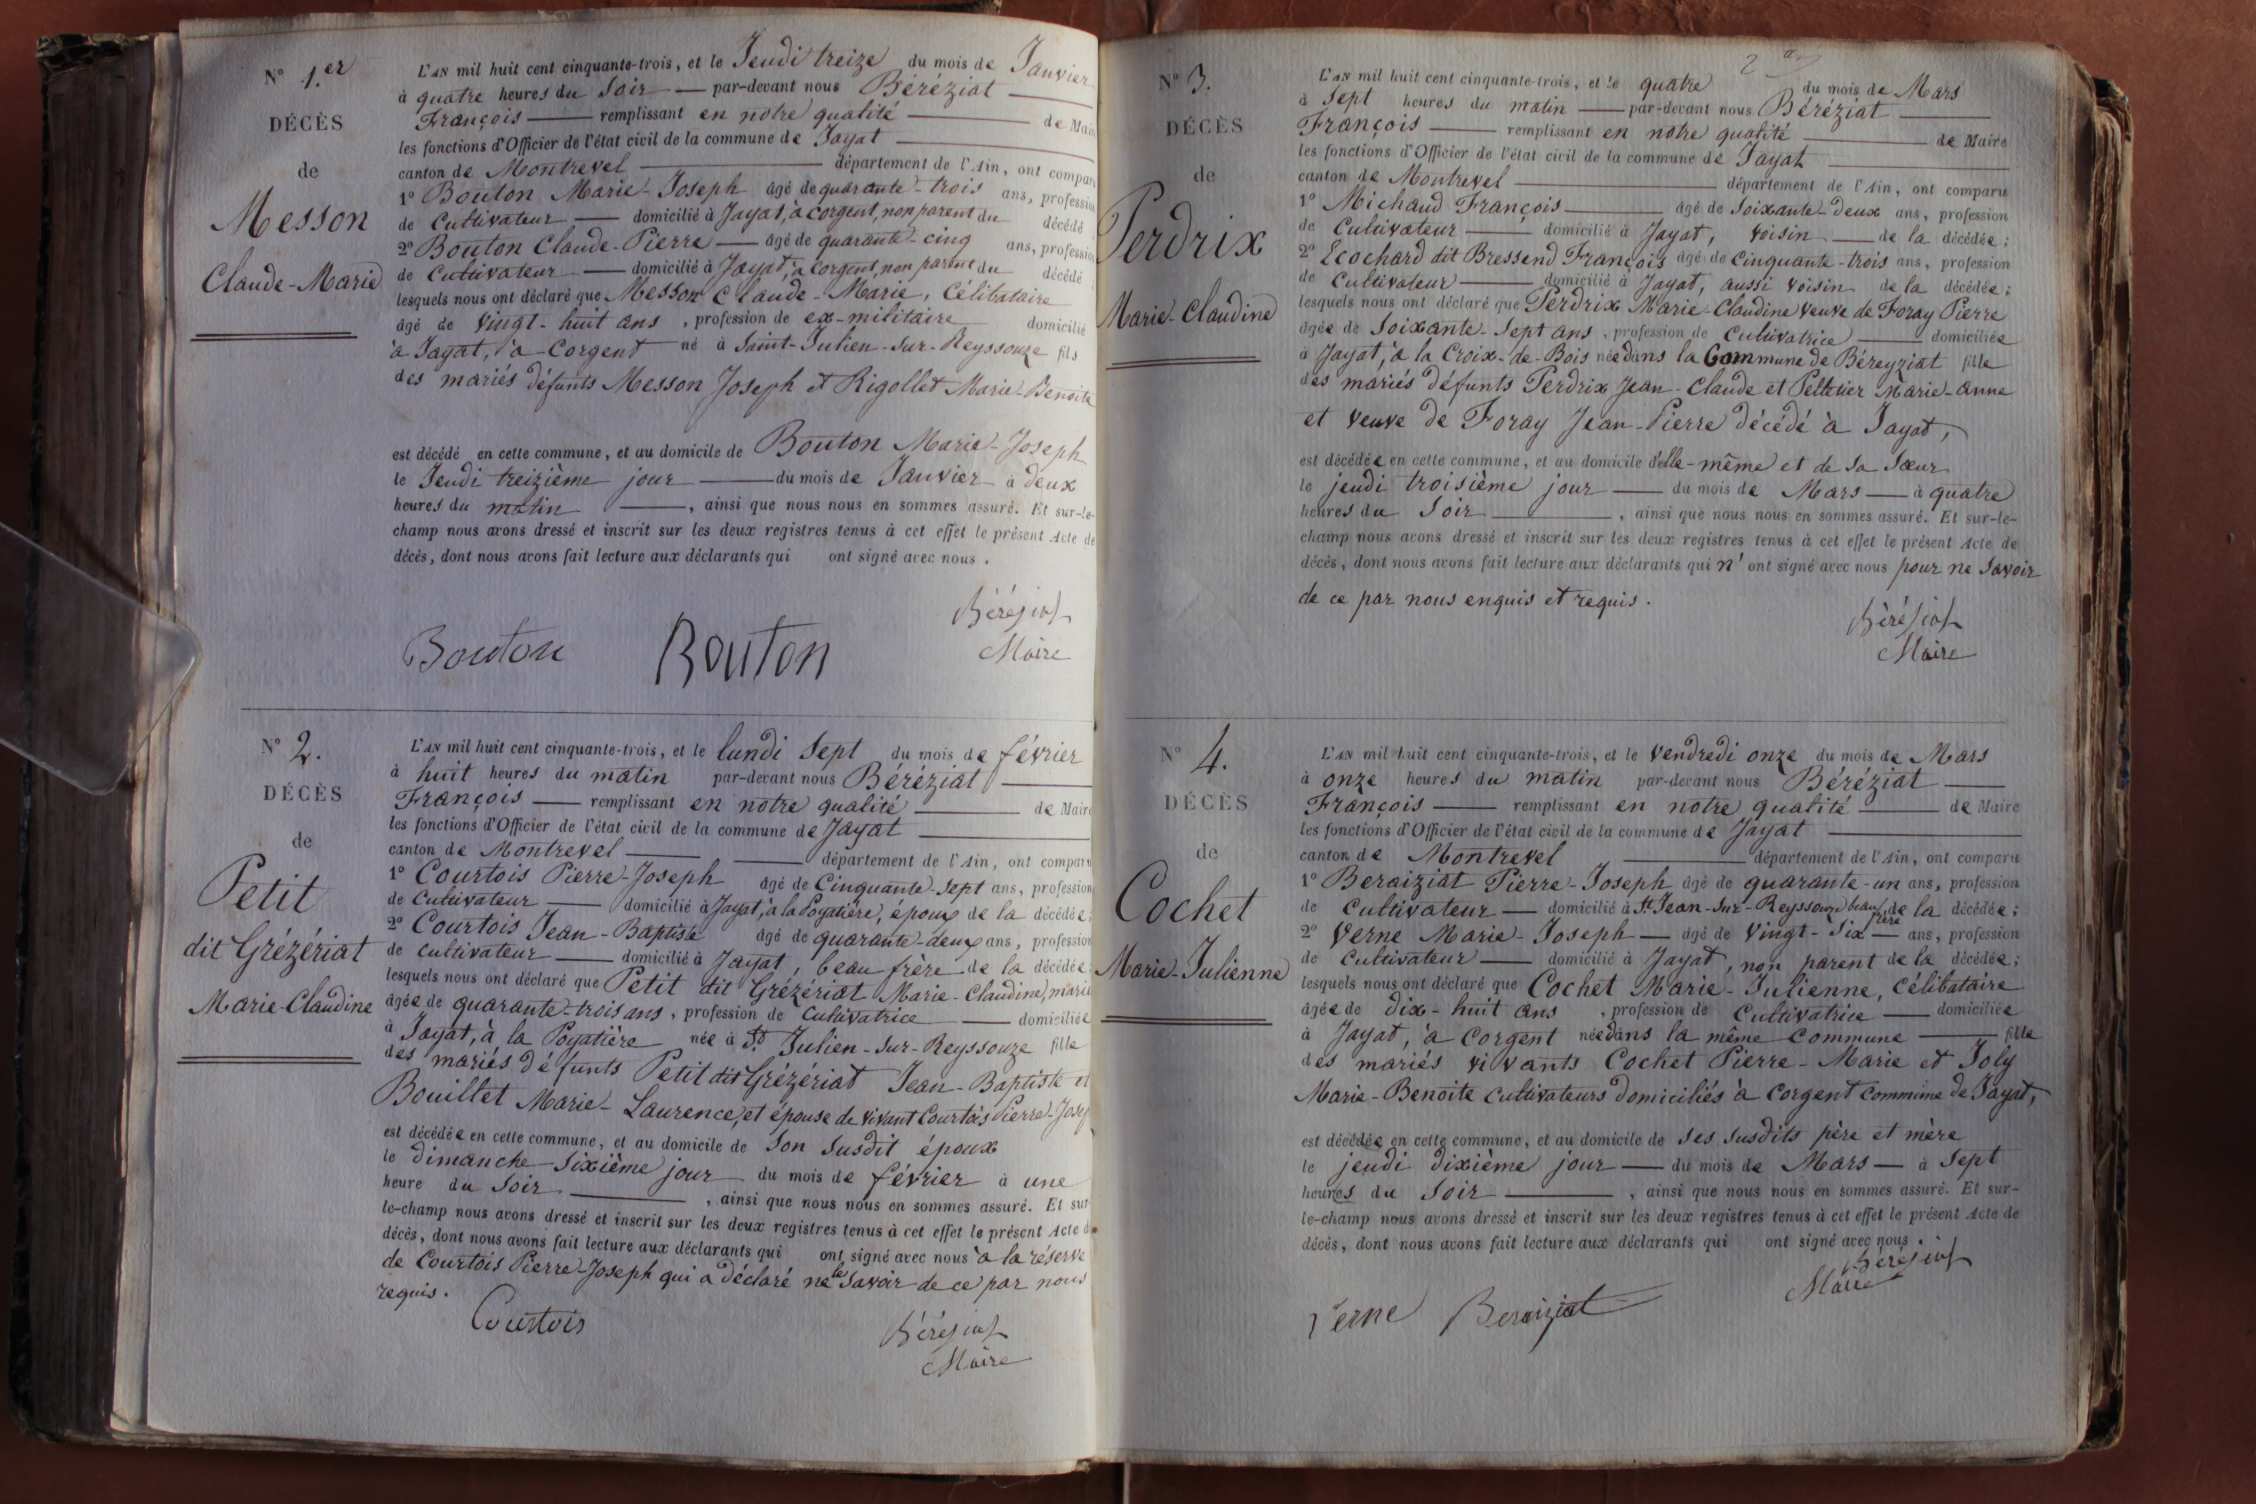 N° 1.er
DÉCÈS
de
Messon
Claude-Marie
L'AN mil huit cent cinquante-trois, et le Jeudi treize du mois de Janvier
à quatre heures du soir par-devant nous Béréziat
François remplissant en notre qualité de Maire
les fonctions d'Officier de l'état civil de la commune de Jayat
canton de Montrevel département de l'Ain, ont comparu
1° Bouton Marie-Joseph âgé de quarante-trois ans, profession
de cultivateur domicilié à Jayat, à Corgent, non parent du décédé
2° Bouton Claude-Pierre âgé de quarante-cinq ans, profession
de cultivateur domicilié à Jayat, à Corgent, non parent du décédé
lesquels nous ont déclaré que Messon Claude-Marie, célibataire
âgé de vingt-huit ans, profession de ex-militaire domicilié
à Jayat, à Corgent né à Saint-Julien-sur-Reyssouze fils
des mariés défunts Messon Joseph et Rigollet Marie-Benoite
est décédé en cette commune, et au domicile de Bouton Marie-Joseph
le Jeudi treizième jour du mois de Janvier à deux
heures du matin, ainsi que nous nous en sommes assuré. Et sur-le-
champ nous avons dressé et inscrit sur les deux registres tenus à cet effet le présent Acte de
décès, dont nous avons fait lecture aux déclarants qui ont signé avec nous.
Béréziat
Bouton Bouton Maire
N° 2.
DÉCÈS
de
Petit
dit Grézériat
Marie-Claudine
L'AN mil huit cent cinquante-trois, et le lundi sept du mois de février
à huit heures du matin par-devant nous Béréziat
François remplissant en notre qualité de Maire
les fonctions d'Officier de l'état civil de la commune de Jayat
canton de Montrevel département de l'Ain, ont comparu
1° Courtois Pierre-Joseph âgé de cinquante-sept ans, profession
de cultivateur domicilié à Jayat, à la Poyatière, époux de la décédée;
2° Courtois Jean-Baptiste âgé de quarante-deux ans, profession
de cultivateur domicilié à Jayat, beau frère de la décédée
lesquels nous ont déclaré que Petit dit Grézériat Marie-Claudine, marié
âgée de quarante-trois ans, profession de cultivatrice domiciliée
à Jayat, à la Poyatière née à St Julien-sur-Reyssouze fille
des mariés défunts Petit dit Grézériat Jean-Baptiste et
Bouillet Marie-Laurence, et épouse de vivant Courtois Pierre-Josep
est décédée en cette commune, et au domicile de son susdit époux
le dimanche sixième jour du mois de février à une
heure du soir, ainsi que nous nous en sommes assuré. Et sur
le-champ nous avons dressé et inscrit sur les deux registres tenus à cet effet le présent Acte de
décès, dont nous avons fait lecture aux déclarants qui ont signé avec nous à la réserve
de Courtois Pierre-Joseph qui a déclaré ne le savoir de ce par nous
requis.
Courtois Béréziat
Maire
2
N° 3.
DÉCÈS
de
Perdrix
Marie-Claudine
L'AN mil huit cent cinquante-trois, et le quatre du mois de Mars
à sept heures du matin par-devant nous Béréziat
François remplissant en notre qualité de Maire
les fonctions d'Officier de l'état civil de la commune de Jayat
canton de Montrevel département de l'Ain, ont comparu
1° Michaud François âgé de soixante-deux ans, profession
de cultivateur domicilié à Jayat, voisin de la décédée;
2° Ecochard dit Bressend François âgé de cinquante-trois ans, profession
de cultivateur domicilié à Jayat, aussi voisin de la décédée;
lesquels nous ont déclaré que Perdrix Marie-Claudine veuve de Foray Pierre
âgée de soixante-sept ans, profession de cultivatrice domiciliée
à Jayat, à la Croix-de-Bois née dans la Commune de Béreyziat fille
des mariés défunts Perdrix Jean-Claude et Pelletier Marie-Anne
et veuve de Foray Jean-Pierre décédé à Jayat,
est décédée en cette commune, et au domicile d'elle-même et de sa sœur
le jeudi troisième jour du mois de Mars à quatre
heures du soir, ainsi que nous nous en sommes assuré. Et sur-le-
champ nous avons dressé et inscrit sur les deux registres tenus à cet effet le présent Acte de
décès, dont nous avons fait lecture aux déclarants qui n'ont signé avec nous pour ne savoir
de ce par nous enquis et requis.
Béréziat
Maire
N° 4.
DÉCÈS
de
Cochet
Marie-Julienne
L'AN mil huit cent cinquante-trois, et le vendredi onze du mois de Mars
à onze heures du matin par-devant nous Béréziat
François remplissant en notre qualité de Maire
les fonctions d'Officier de l'état civil de la commune de Jayat
canton de Montrevel département de l'Ain, ont comparu
1° Beraiziat Pierre-Joseph âgé de quarante-un ans, profession
de cultivateur domicilié à St Jean-sur-Reyssouze beau frère de la décédée;
2° Verne Marie-Joseph âgé de vingt-six ans, profession
de cultivateur domicilié à Jayat, non parent de la décédée;
lesquels nous ont déclaré que Cochet Marie-Julienne, célibataire
âgée de dix-huit ans, profession de cultivatrice domiciliée
à Jayat, à Corgent née dans la même commune fille
des mariés vivants Cochet Pierre-Marie et Joly
Marie-Benoite cultivateurs domiciliés à Corgent commune de Jayat,
est décédée en cette commune, et au domicile de ses susdits père et mère
le jeudi dixième jour du mois de Mars à sept
heures du soir, ainsi que nous nous en sommes assuré. Et sur-
le-champ nous avons dressé et inscrit sur les deux registres tenus à cet effet le présent Acte de
décès, dont nous avons fait lecture aux déclarants qui ont signé avec nous.
Béréziat
Maire
Verne Beraiziat